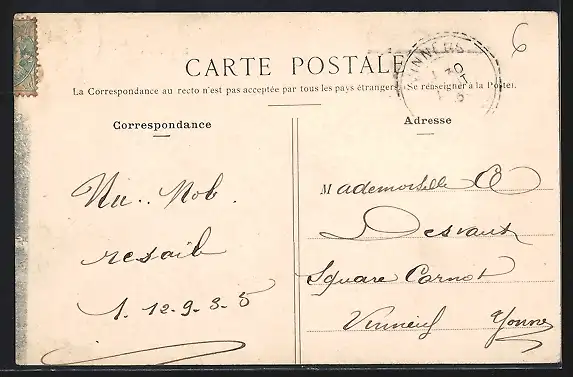 6
VINNEUF
30
CARTE POSTALE
La Correspondance au recto n'est pas acceptée par tous les pays étrangers. (Se renseigner à la Poste).
Correspondance
Adresse
Nu.. Nob.
resail
1. 12-9-3-5
Mademoiselle O
Desvaux
Square Carnot
Vinneuf Yonne